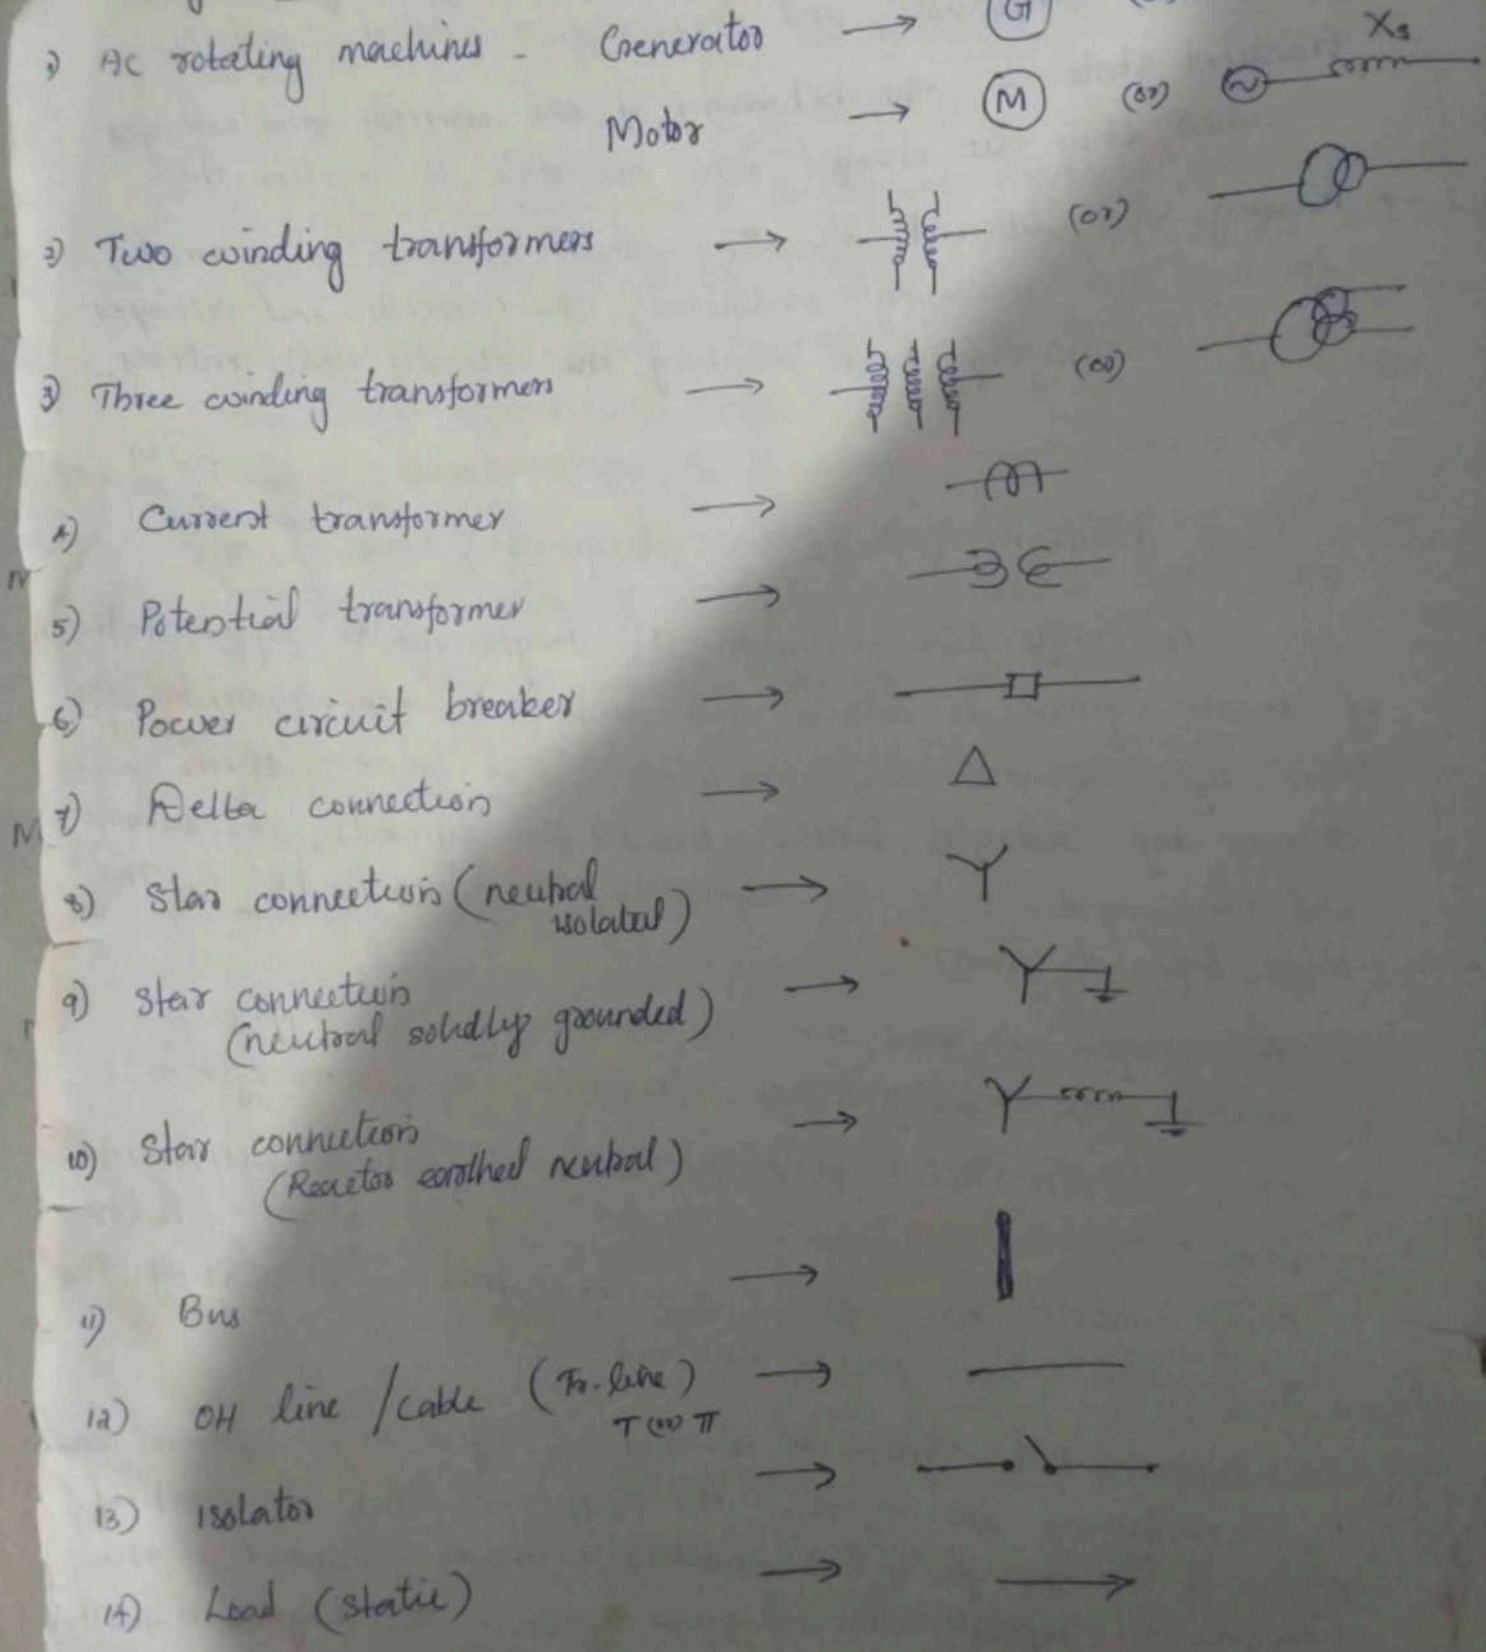 1) AC rotating machines - Generator → G
Motor → M (or) ~ Xs
2) Two winding transformers → (or)
3) Three winding transformers → (or)
4) Current transformer →
5) Potential transformer →
6) Power circuit breaker →
7) Delta connection → Δ
8) Star connection (neutral → Y
isolated)
9) Star connection → Y
(neutral solidly grounded)
10) Star connection → Y
(Reactor earthed neutral)
11) Bus →
12) OH line / cable (Tr. line) →
T (or) π
13) Isolator →
14) Load (static) →